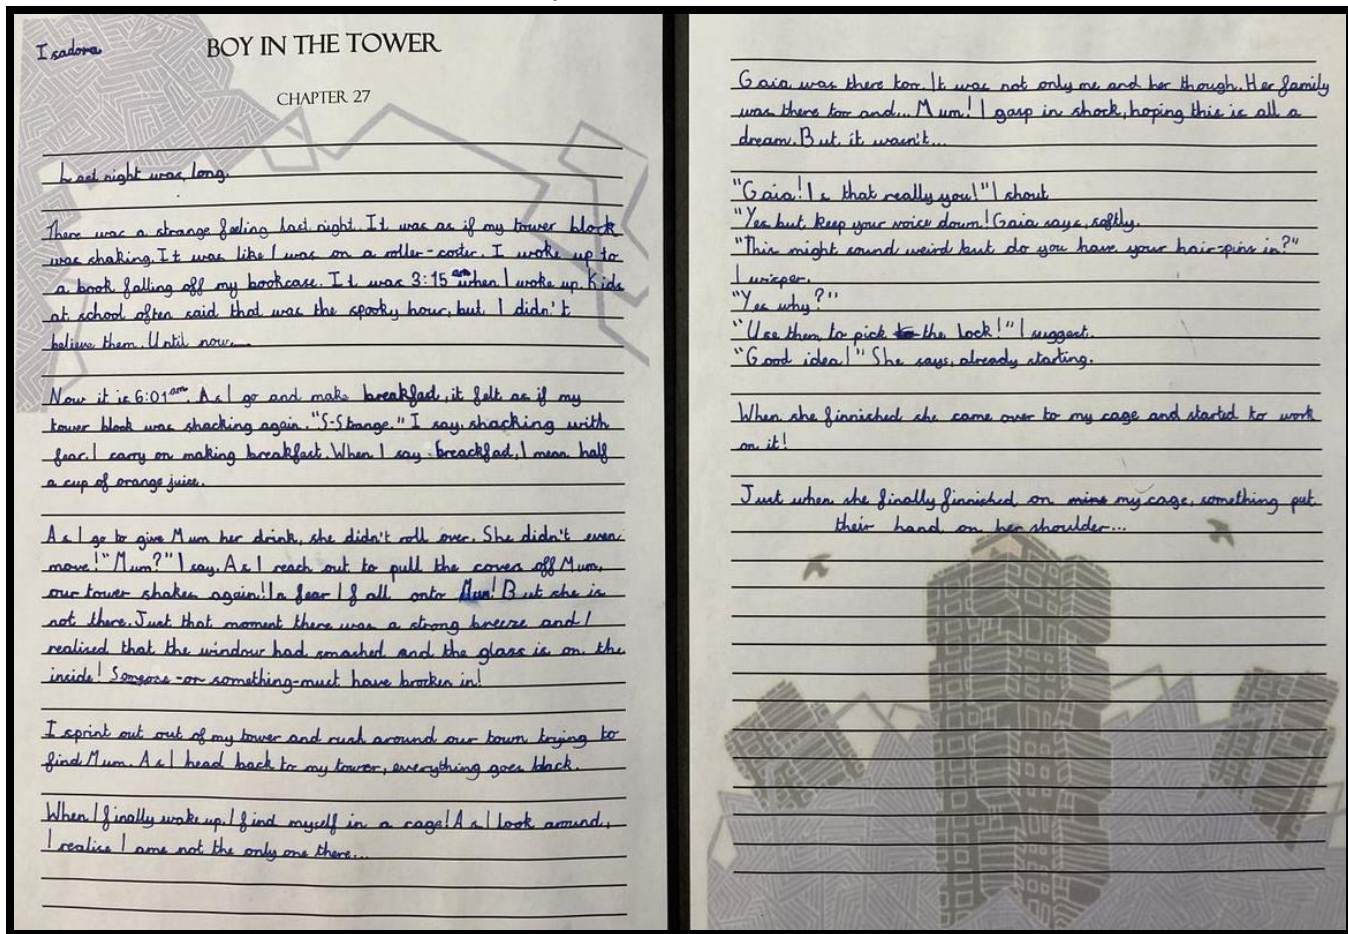 Isadora
BOY IN THE TOWER
CHAPTER 27
Last night was, long.
There was a strange feeling last night. It was as if my tower block
was shaking. It was like I was on a roller-coster. I woke up to
a book falling off my bookcase. It was 3:15 am when I woke up. Kids
at school often said that was the spooky hour, but I didn't
believe them. Until now....
Now it is 6:01am. As I go and make breakfad, it felt as if my
tower block was shacking again. "S-Strange." I say, shacking with
fear. I carry on making breakfast. When I say breackfad, I mean half
a cup of orange juice.
As I go to give Mum her drink, she didn't roll over. She didn't even
move! "Mum?" I say. As I reach out to pull the cover off Mum,
our tower shakes again! In fear I fall onto Mum! But she is
not there. Just that moment there was a strong breeze and I
realised that the windour had smashed and the glass is on the
inside! Someone -or something-must have brocken in!
I sprint out out of my tower and rush around our town trying to
find Mum. As I head back to my tower, everything goes black.
When I finally wake up, I find myself in a cage! As I look around,
I realise I ame not the only one there...
Gaia was there too. It was not only me and her though. Her family
was there too and... Mum! I gasp in shock, hoping this is all a
dream. But it wasn't...
"Gaia! Is that really you!" I shout
"Yes but keep your voice down! Gaia says, softly.
"This might sound weird but do you have your hair-pins in?"
I wisper.
"Yes why?"
"Use them to pick to the lock!" I suggest.
"Good idea!" She says, already starting.
When she finnished she came over to my cage and started to work
on it!
Just when she finally finnished on mine my cage, something put
their hand on her shoulder...